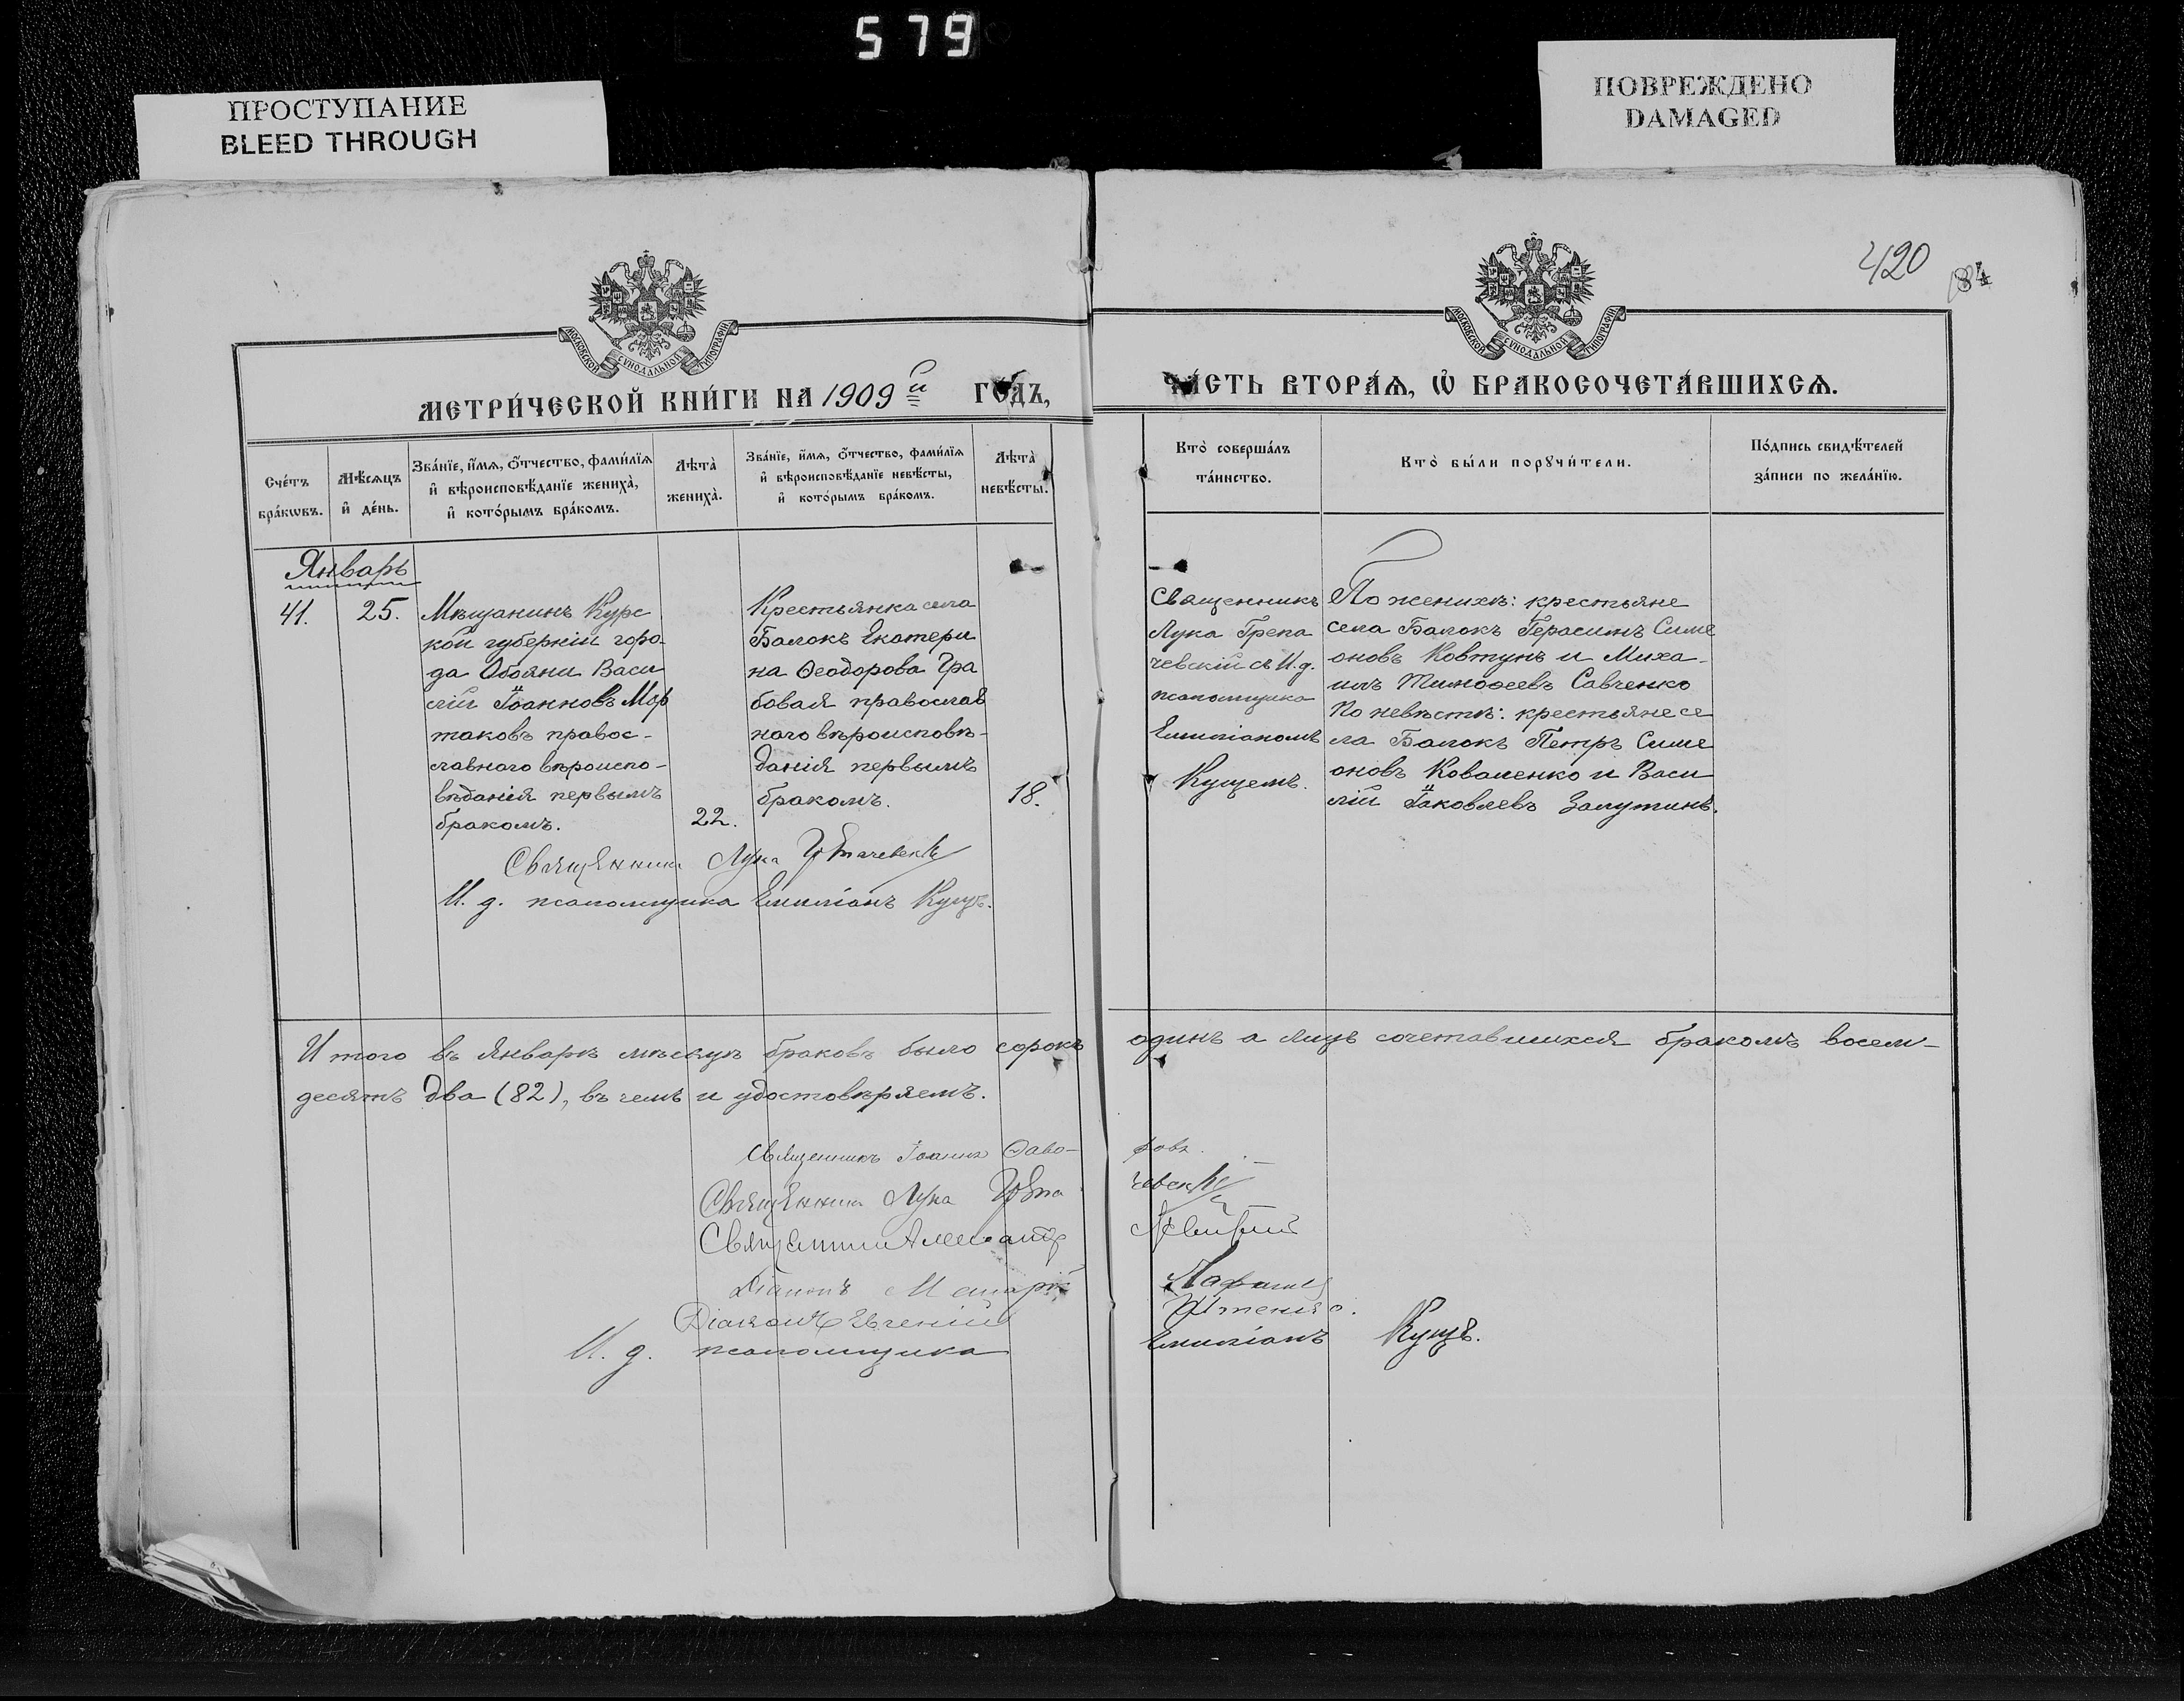 579
ПРОСТУПАНИЕ
BLEED THROUGH
ПОВРЕЖДЕНО
DAMAGED
420
184
МОСКОВСКОЙ СѴНОДАЛЬНОЙ ТИПОГРАФІИ
МОСКОВСКОЙ СѴНОДАЛЬНОЙ ТИПОГРАФІИ
МЕТРИ́ЧЕСКОЙ КНИ́ГИ НА 1909й ГО́ДЪ,
ЧА́СТЬ ВТОРА́Ѧ, Ѡ҆ БРАКОСОЧЕТА́ВШИХСѦ.
Сче́тъ
бра́кѡвъ.
Мѣ́сѧцъ
и҆ де́нь.
Зва́нїе, и҆́мѧ, ѻ҆́тчество, фами́лїѧ
и҆ вѣроисповѣ́данїе жениха̀,
и҆ кото́рымъ бра́комъ.
Лѣта̀
жениха̀.
Зва́нїе, и҆́мѧ, ѻ҆́тчество, фами́лїѧ
и҆ вѣроисповѣ́данїе невѣ́сты,
и҆ кото́рымъ бра́комъ.
Лѣта̀
невѣ́сты.
Кто̀ соверша́лъ
та́инство.
Кто̀ бы́ли порꙋчи́тели.
По́дпись свидѣ́телей
за́писи по жела́нїю.
Январь
41.
25.
Мѣщанинъ Кур
ской губерніи горо-
да Обояни Васи
лій Іоанновъ Мор
таковъ правос-
лавнаго вѣроиспо-
вѣданія первымъ
бракомъ.
22.
Крестьянка села
Балокъ Екатери
на Ѳеодорова Гра
бовая православ
наго вѣроисповѣ-
данія первымъ
бракомъ.
18.
Священникъ
Лука Грепа
чевскій съ И.д.
псаломщика
Емиліаномъ
Кущемъ.
По женихѣ: крестьяне
села Балокъ Герасимъ Симе
оновъ Ковтунъ и Миха-
илъ Тимоѳеевъ Савченко
По невѣстѣ: крестьяне се
ла Балокъ Петръ Симе
оновъ Коваленко и Васи
лій Іаковлевъ Залутинъ.
Священникъ Лука Грепачевскій
И. д. псаломщика Емиліанъ Кущъ.
Итого въ Январѣ мѣсяцѣ браковъ было сорокъ одинъ а лицъ сочетавшихся бракомъ восем-
десятъ два (82), въ чемъ и удостовѣряемъ.
Священникъ Іоаннъ Ѳаво-ровъ.
Священникъ Лука Грепачевскій
Священникъ Александр
Діаконъ Макарій
Діаконъ Евгеній
И. д. псаломщика Емиліанъ Кущъ.